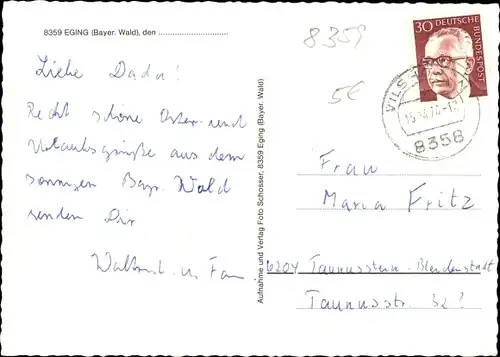 8359 EGING (Bayer. Wald), den ..............................
8359
5€
30 DEUTSCHE
BUNDESPOST
VILS
8358
Liebe Dada!
Recht schöne Oster- und
Urlaubsgrüße aus dem
sonnigen Bayr. Wald
senden Dir
Waltraud u. Fam.
Aufnahme und Verlag Foto Schosser, 8359 Eging (Bayer. Wald)
Frau
Maria Fritz
6204 Taunusstein-Bleidenstadt
Taunusstr. 32?